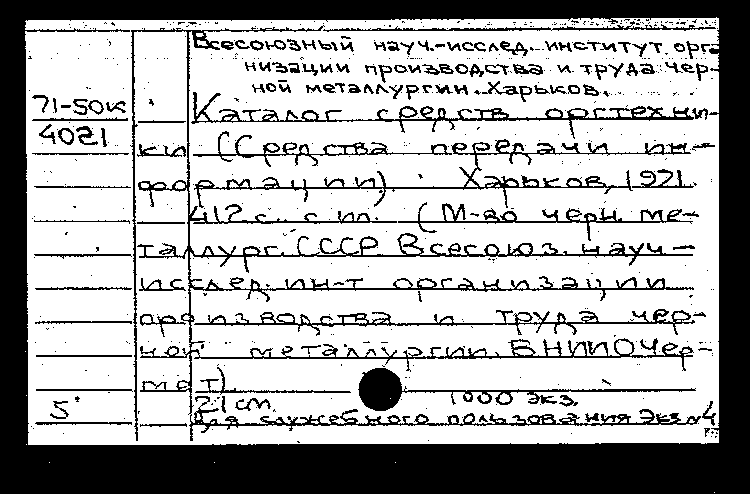 Всесоюзный науч.-исслед. институт орга
низации производства и труда чер-
ной металлургии. Харьков.
71-50к
4021
Каталог средств оргтехни-
ки (Средства передачи ин-
формации). Харьков, 1971.
412 с. с ил. (М-во черн. ме-
таллург. СССР Всесоюз. науч-
исслед. ин-т организации
производства и труда чер-
ной металлургии. ВНИИОЧер-
мет).
5
21 см. 1000 экз.
Для служебного пользования Экз №4